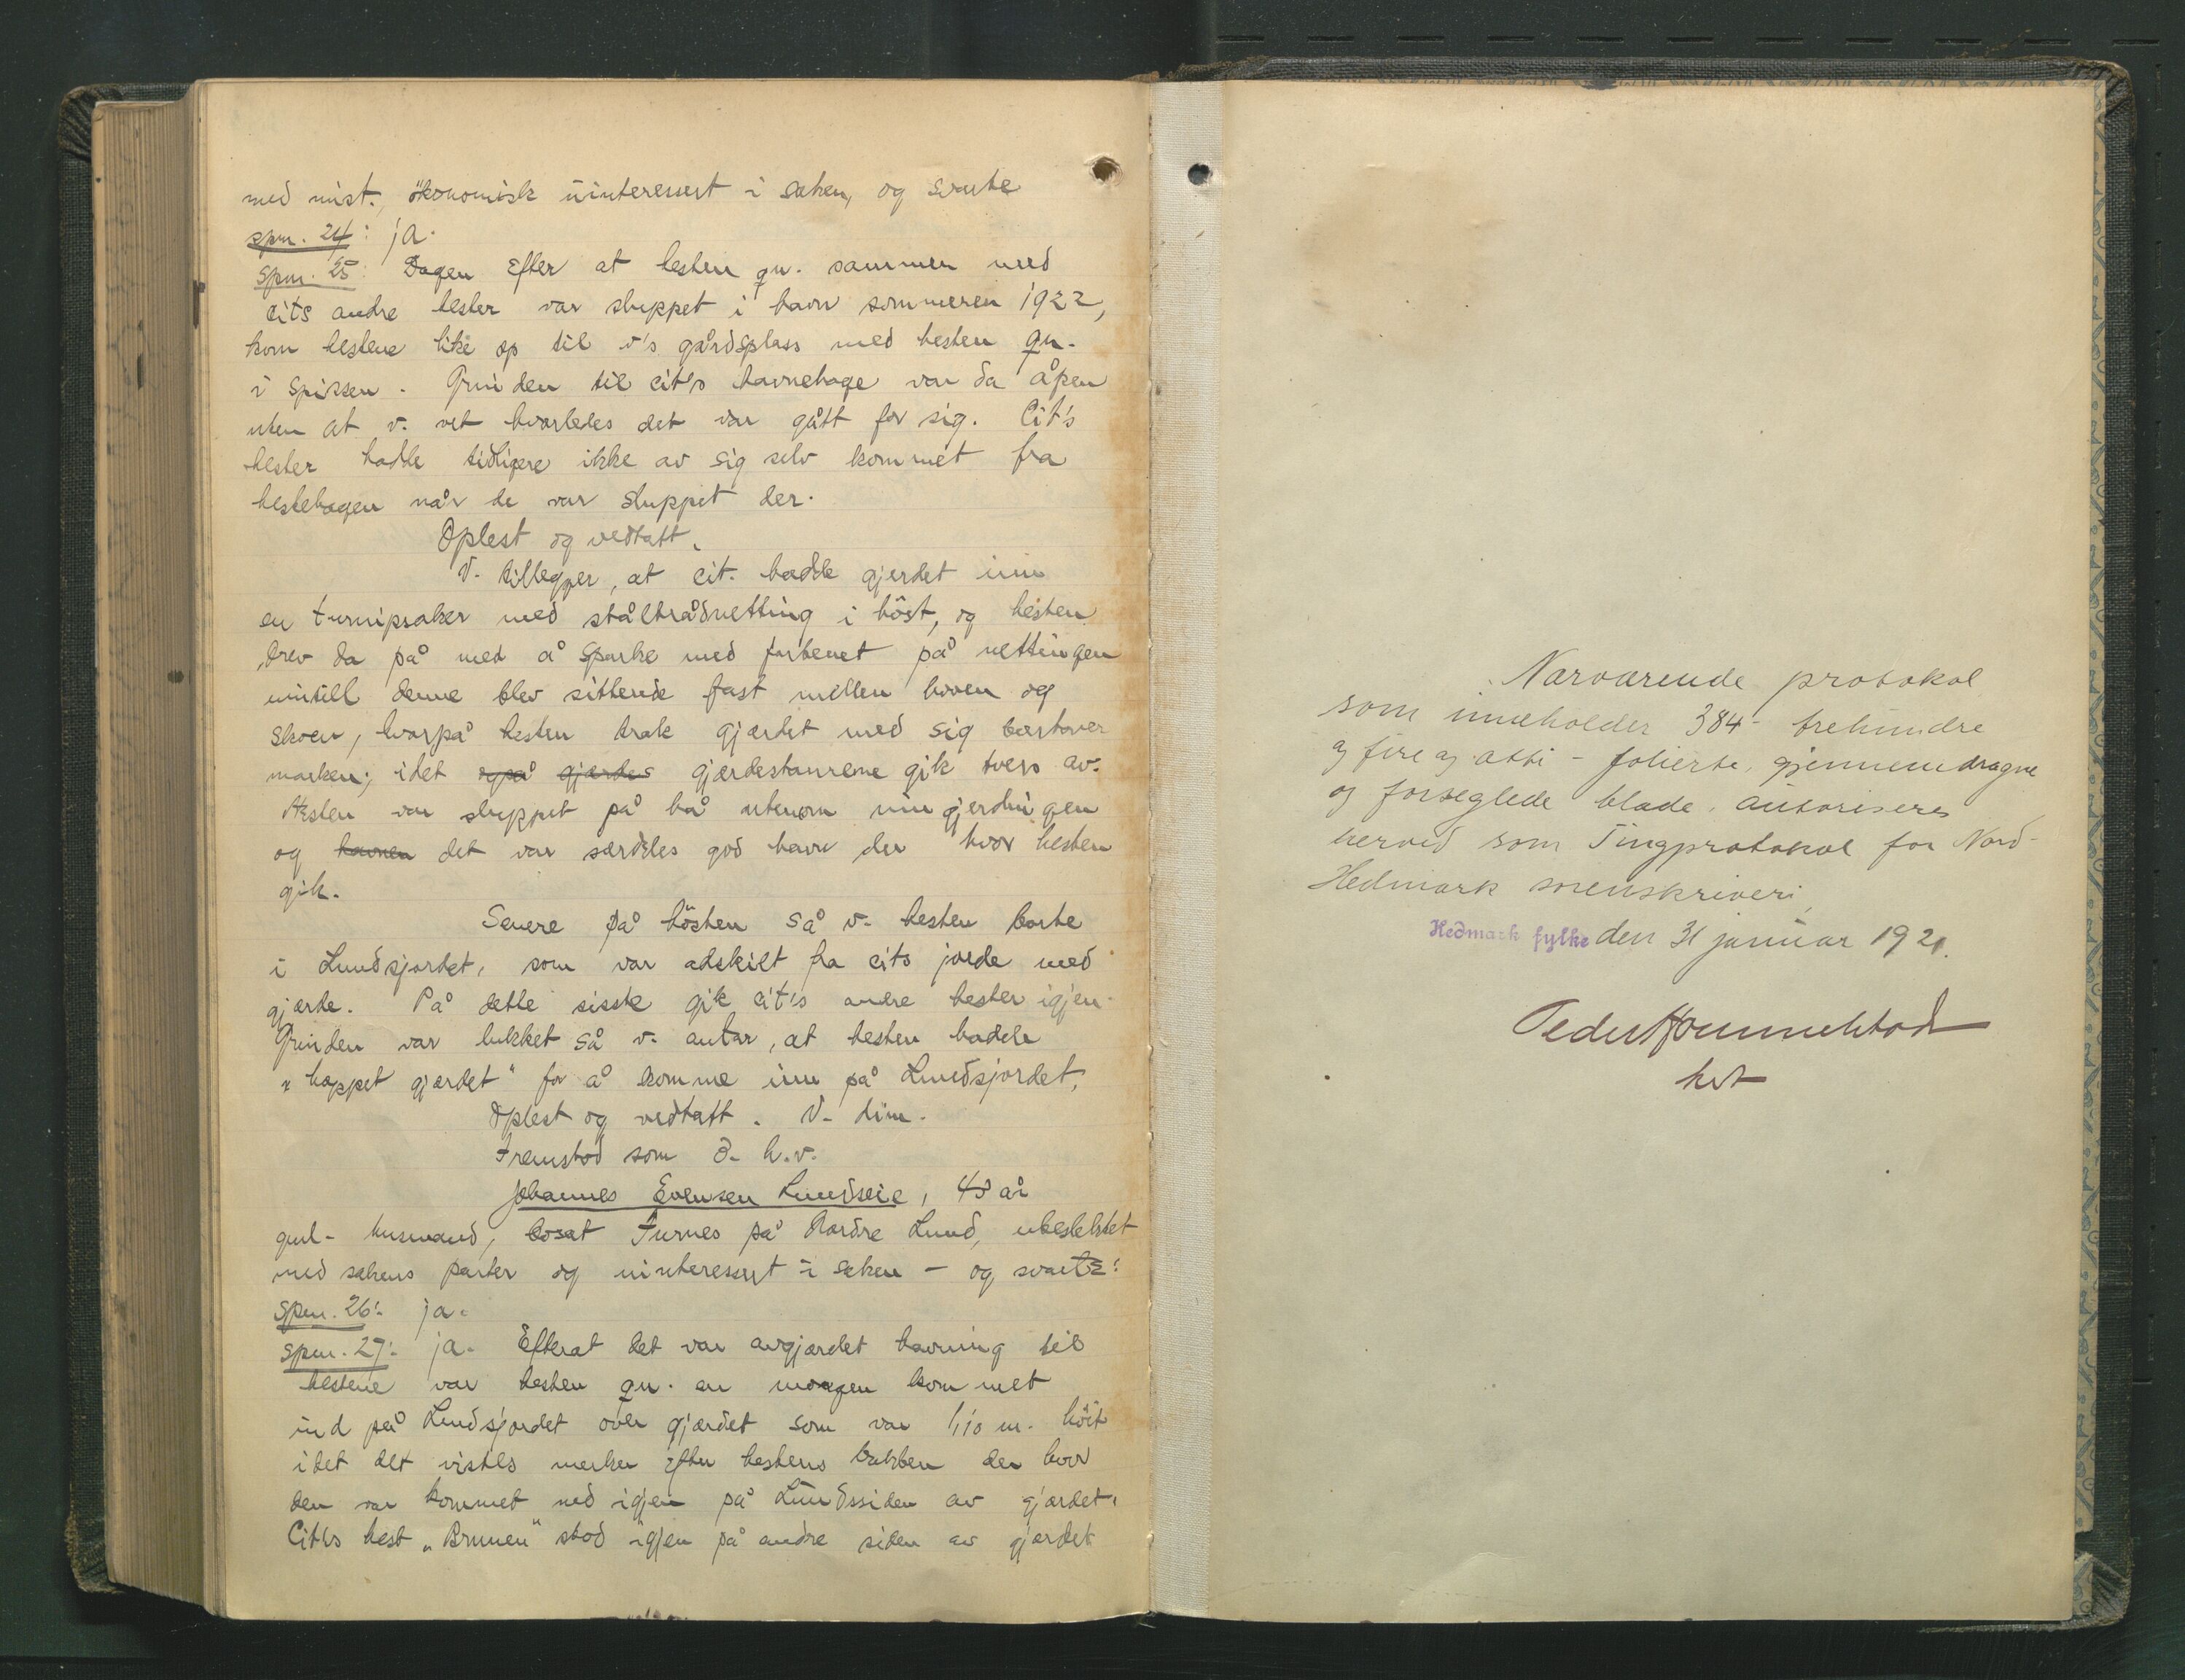 med mist., økonomisk uinteressert i saken, og svarte
spm. 24: ja.
spm. 25: Dagen Efter at hesten qu. sammen med
cits andre hester var sluppet i havn sommeren 1922,
kom hestene like op til v's gårdsplass med hesten qu.
i Spissen. Grinden til cit's havnehage var da åpen
uten at v. vet hvorledes det var gått for sig. Cit's
hester hadde tidligere ikke av sig selv kommet fra
hestehagen når de var sluppet der.
Oplest og vedtatt.
V. tillegger, at cit. hadde gjerdet inn
en turnipsaker med ståltrådnetting i høst, og hesten
drev da på med å sparke med forbenet på nettingen
inntill denne blev sittende fast mellem hoven og
skoen, hvorpå hesten trak gjærdet med sig bortover
marken; idet også gjærdes gjærdestaurene gik tvers av.
Hesten var sluppet på hå utenom inngjerdingen
og havnen det var særdeles god havn der hvor hesten
gik.
Senere på høsten så v. hesten borte
i Lundsjordet, som var adskilt fra cits jorde med
gjærde. På dette sisste gik cit's andre hester igjen.
Grinden var lukket så v. antar, at hesten hadde
"hoppet gjærdet" for å komme inn på Lundsjordet,
Oplest og vedtatt. V. dim.
Fremstod som 8. h.v.
Johannes Evensen Lundseie, 43 år
gml. husmand, bosat Furnes på Nordre Lund, ubeslektet
med sakens parter og uinteressert i saken - og svarte:
Spm. 26: ja.
spm. 27: ja. Efterat det var avgjærdet havning til
hestene var hesten qu. en morgen kommet
ind på Lundsjordet over gjærdet som var 1,10 m. høit
idet det vistes merker efter hestens bakben der hvor
den var kommet ned igjen på Lundssiden av gjærdet.
Cit's hest "Brunen" stod igjen på andre siden av gjærdet
Nærværende protokol
som inneholder 384 - trehundre
og fire og otti - folierte, gjennemdragne
og forseglede blade, autoriseres
herved som Tingprotokol for Nord-
Hedmark sorenskriveri,
Hedmark fylke den 31 januar 1921.